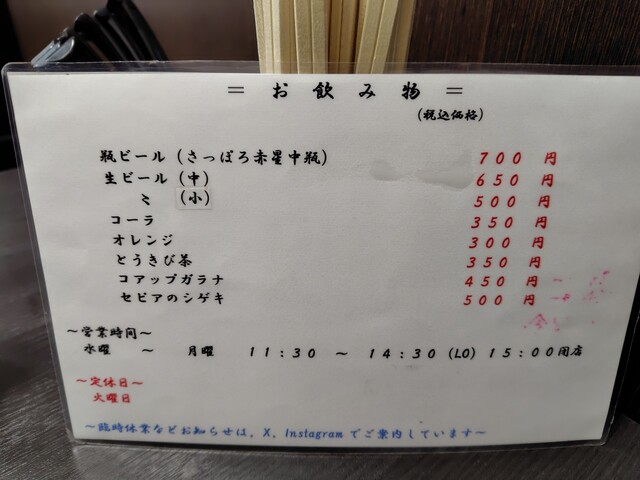 ＝ お 飲 み 物 ＝
(税込価格)
瓶ビール (さっぽろ赤星中瓶) 700 円
生ビール (中) 650 円
〃 (小) 500 円
コーラ 350 円
オレンジ 300 円
とうきび茶 350 円
コアップガラナ 450 円
セピアのシゲキ 500 円
～営業時間～
水曜 ～ 月曜 11:30 ～ 14:30 (LO) 15:00閉店
～定休日～
火曜日
～臨時休業などお知らせは、X、Instagram でご案内しています～